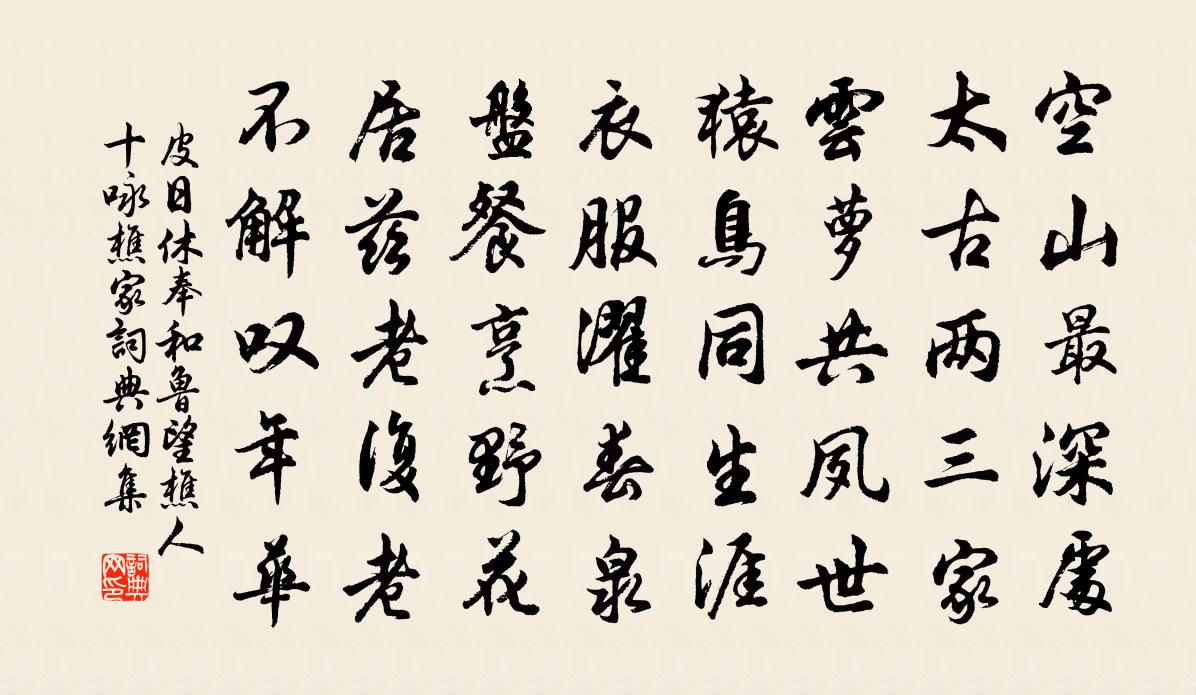 空山最深處
太古两三家
雲萝共夙世
猿鳥同生涯
衣服濯春泉
盤餐烹野花
居兹老復老
不解叹年華
皮日休奉和魯望樵人
十咏樵家詞典網集
詞典
网印